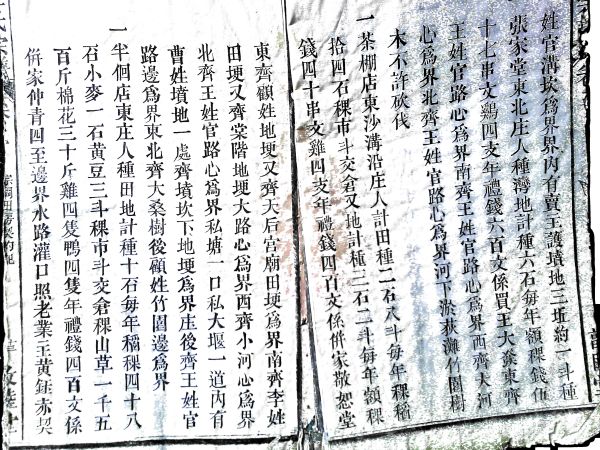 姓官溝坎爲界界內有賣主護墳地三坵約一斗種
張家堂東北庄人種灣地計種六石每年額稞錢伍
十七串文鷄四支年禮錢六百文係買王大榮東齊
王姓官路心爲界南齊王姓官路心爲界西齊大河
心爲界北齊王姓官路心爲界河下淤荻灘竹園樹
木不許砍伐
一茶棚店東沙溝沿庄人計田種二石八斗每年稞稻
拾四石稞市斗交倉又地計種三石二斗每年額稞
錢四十串文雞四支年禮錢四百文係併家敬恕堂
東齊顧姓地埂又齊天后宮廟田埂爲界南齊李姓
田埂又齊棠階地埂大路心爲界西齊小河心爲界
北齊王姓官路心爲界私塘一口私大堰一道內有
曹姓墳地一處齊墳坎下地埂爲界庄後齊王姓官
路邊爲界東北齊大桑樹後顧姓竹園邊爲界
一半個店東庄人種田地計種十石每年稻稞四十八
石小麥一石黃豆三斗稞市斗交倉稞山草一千五
百斤棉花三十斤雞四隻鴨四隻年禮錢四百文係
併家仲青四至邊界水路灌口照老業主黃鈺赤契